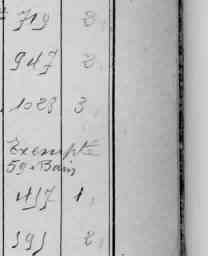 719 2
947 2
1023 3
Exempte
59 Bain
417 1
595 2